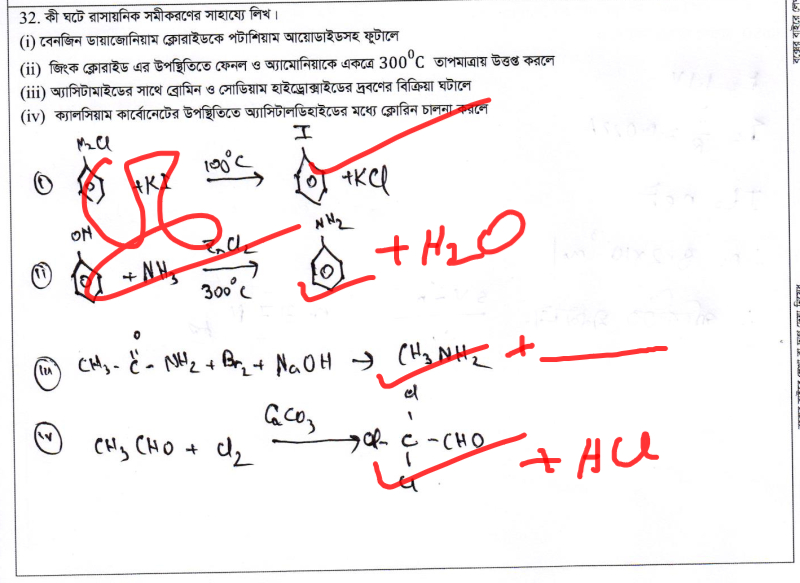 32. কী ঘটে রাসায়নিক সমীকরণের সাহায্যে লিখ।
(i) বেনজিন ডায়াজোনিয়াম ক্লোরাইডকে পটাশিয়াম আয়োডাইডসহ ফূটালে
(ii) জিংক ক্লোরাইড এর উপস্থিতিতে ফেনল ও অ্যামোনিয়াকে একত্রে 300⁰C তাপমাত্রায় উত্তপ্ত করলে
(iii) অ্যাসিটামাইডের সাথে ব্রোমিন ও সোডিয়াম হাইড্রোক্সাইডের দ্রবণের বিক্রিয়া ঘটালে
(iv) ক্যালসিয়াম কার্বোনেটের উপস্থিতিতে অ্যাসিটালডিহাইডের মধ্যে ক্লোরিন চালনা করলে
N₂Cl I
(i) +KI 100°C → +KCl
OH ZnCl₂ NH₂
(ii) + NH₃ → + H₂O
300°C
O
(iii) CH₃ - C - NH₂ + Br₂ + NaOH → CH₃NH₂ +
CaCO₃ Cl
(iv) CH₃CHO + Cl₂ → Cl - C - CHO + HCl
Cl